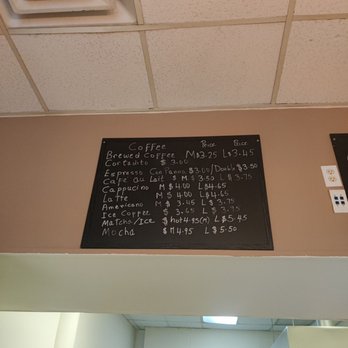 Coffee Price Price
Brewed Coffee M$3.25 L$3.45
Cortadito $3.00
Espresso Con Panna $3.00/Double $3.50
Cafe Au Lait $ M$3.50 L$3.75
Cappucino M$4.00 L$4.65
Latte M$4.00 L$4.65
Americano M$3.45 L$3.75
Ice Coffee $3.65 L$3.95
Matcha/Ice $hot 4.95(M) L$5.45
Mocha $M4.95 L$5.50